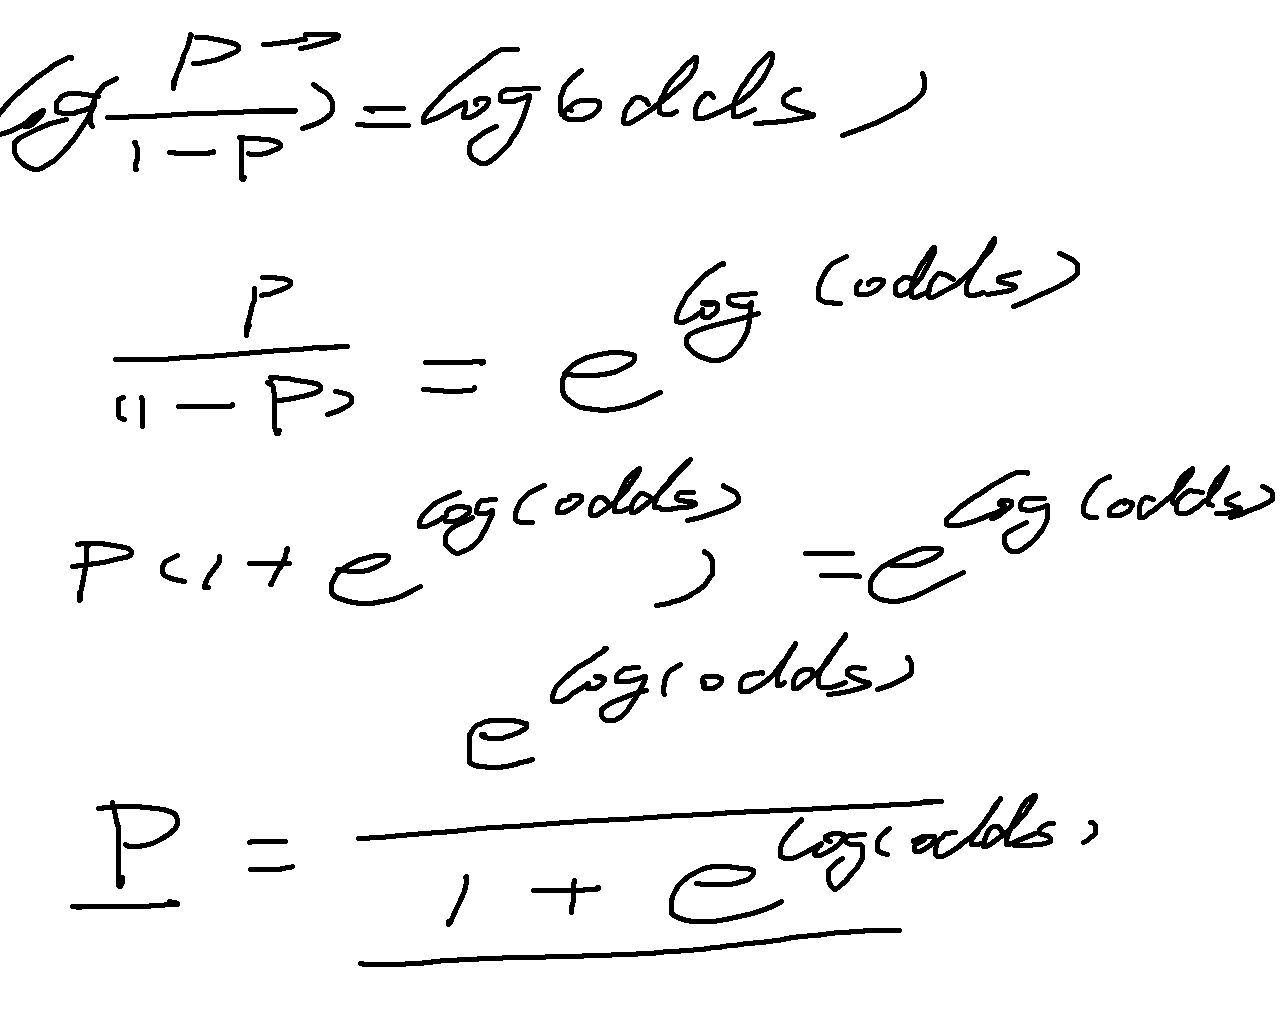 log(P/(1-P)) = log(odds)
P/(1-P) = e^log(odds)
P(1+e^log(odds)) = e^log(odds)
P = e^log(odds)/(1+e^log(odds))